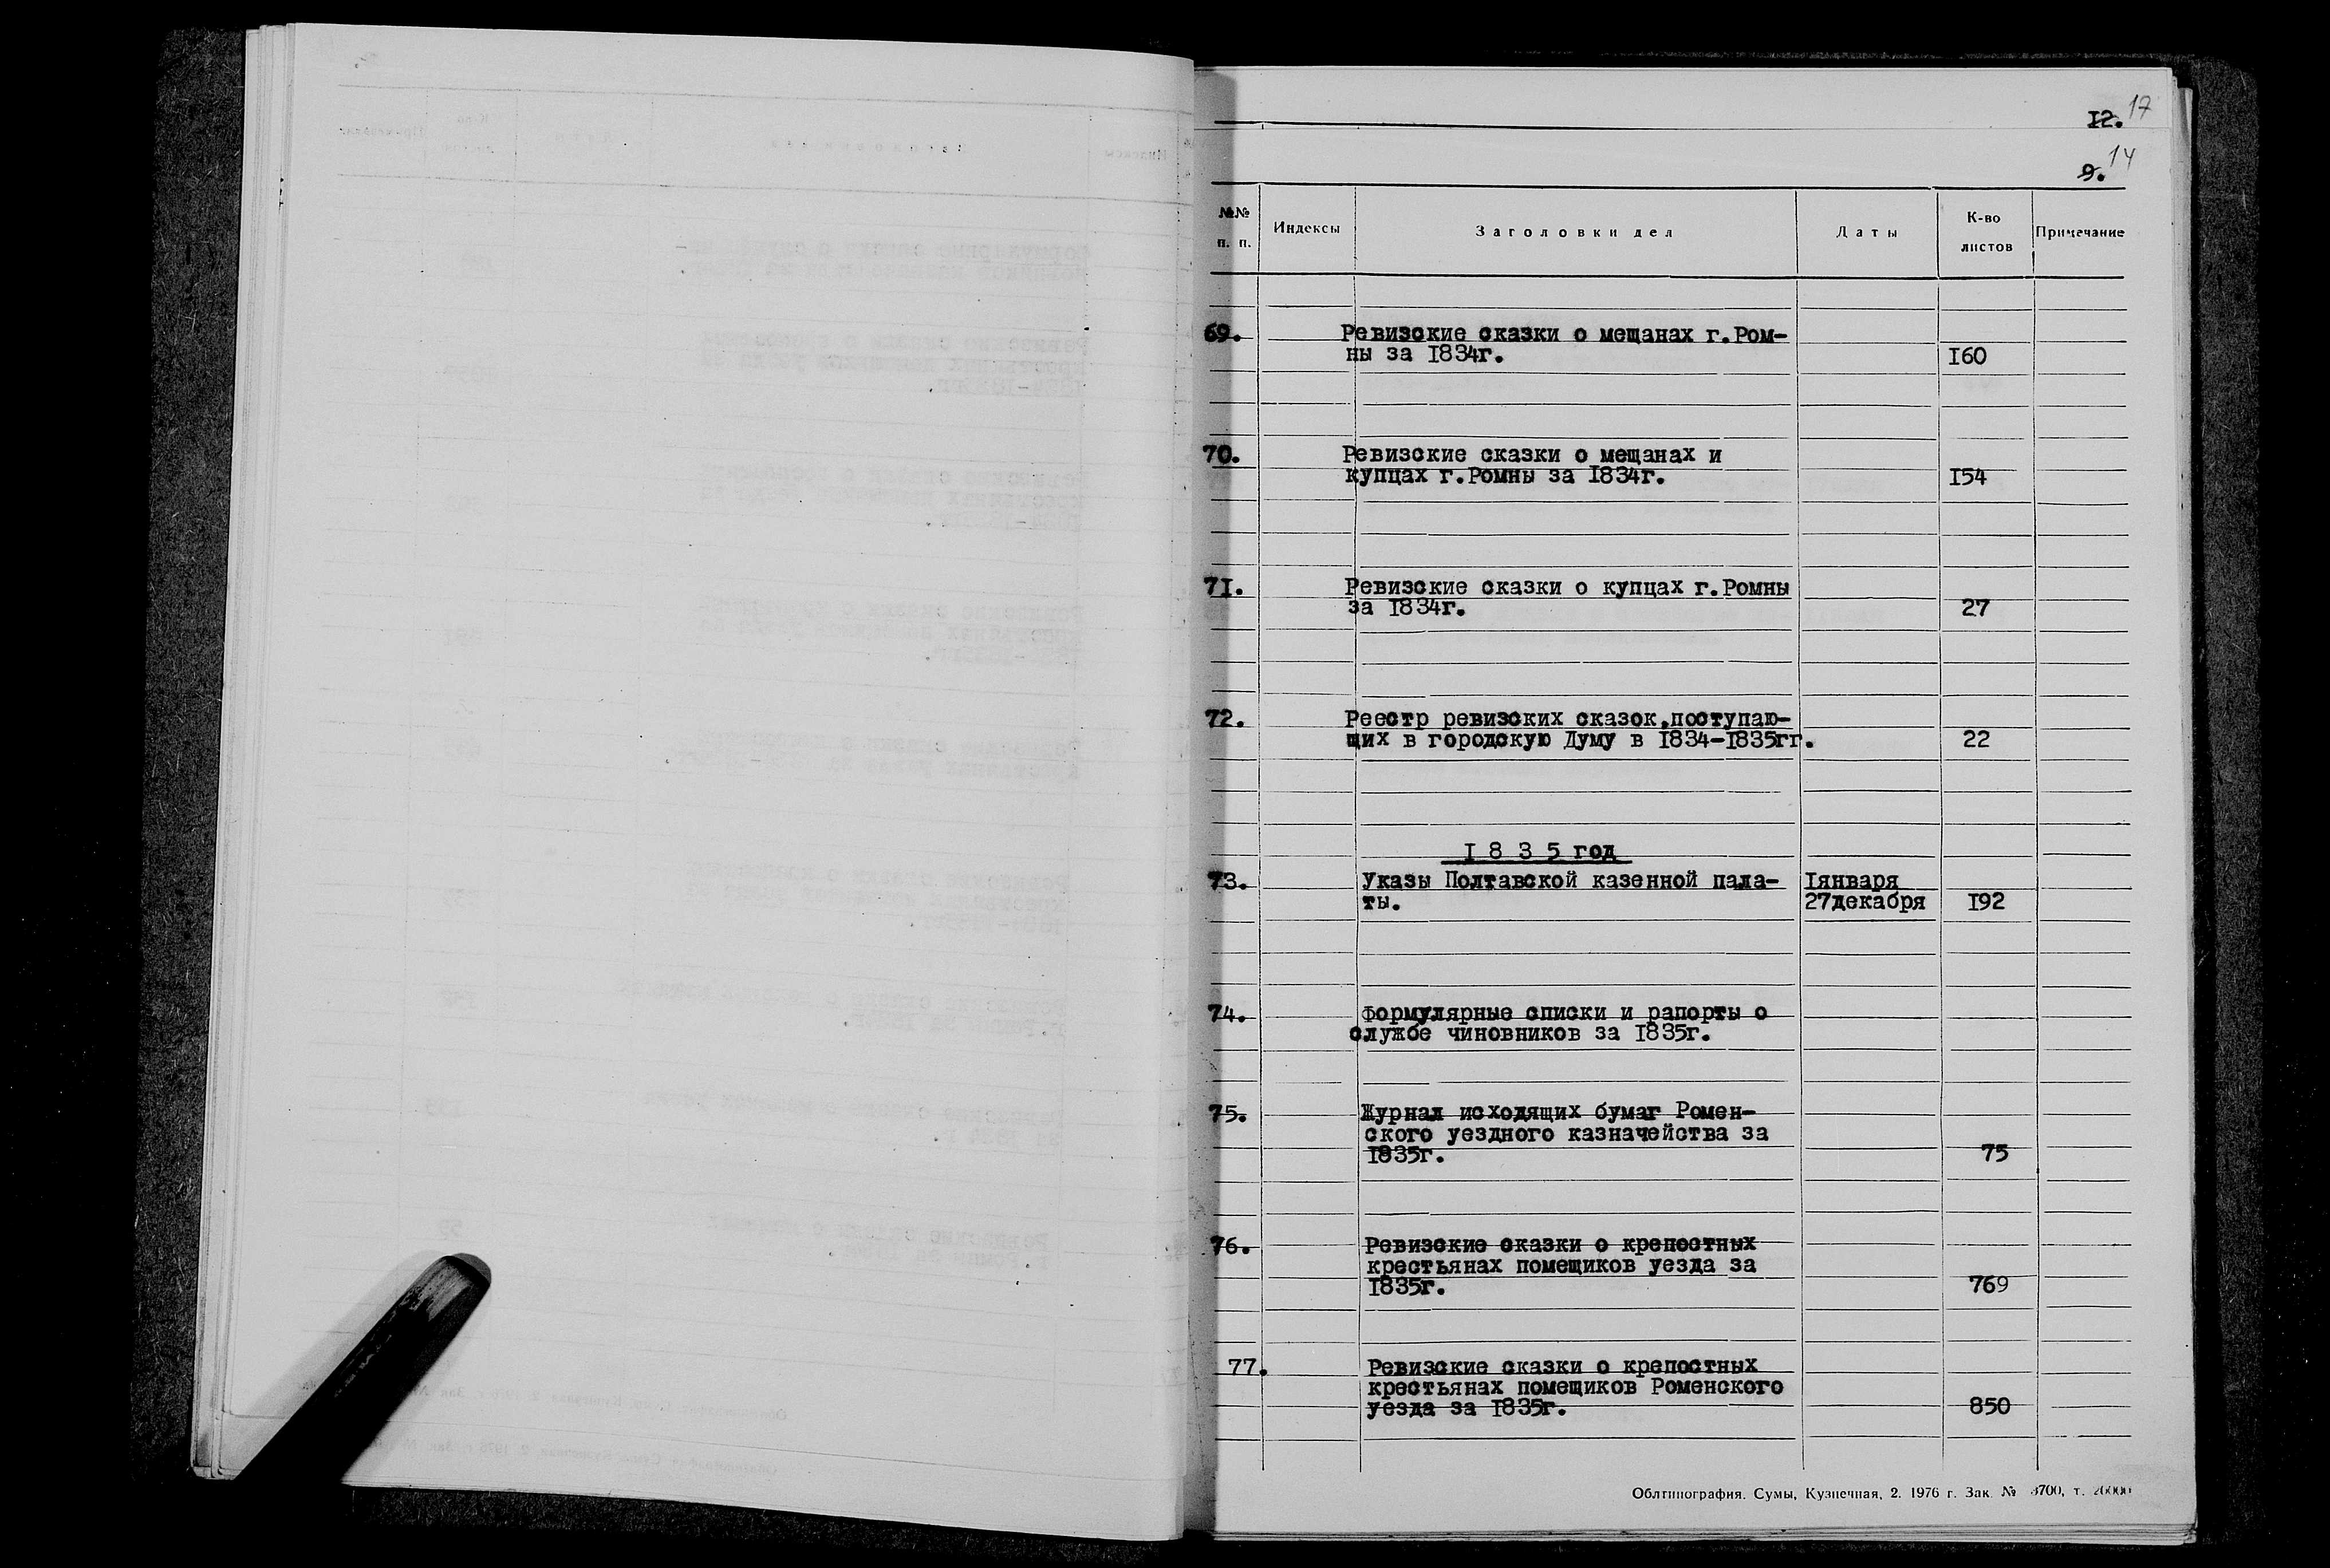 12. 17
9. 14
№№ п. п. Индексы Заголовки дел Даты К-во листов Примечание
69. Ревизские сказки о мещанах г.Ром-
ны за 1834г. 160
70. Ревизские сказки о мещанах и
купцах г.Ромны за 1834г. 154
71. Ревизские сказки о купцах г.Ромны
за 1834г. 27
72. Реестр ревизских сказок,поступаю-
щих в городскую Думу в 1834-1835гг. 22
1835 год
73. Указы Полтавской казенной пала- 1января
ты. 27декабря 192
74. Формулярные списки и рапорты о
службе чиновников за 1835г.
75. Журнал исходящих бумаг Ромен-
ского уездного казначейства за
1835г. 75
76. Ревизские сказки о крепостных
крестьянах помещиков уезда за
1835г. 769
77. Ревизские сказки о крепостных
крестьянах помещиков Роменского
уезда за 1835г. 850
Облтипография. Сумы, Кузнечная, 2. 1976 г. Зак. № 3700, т. 20000